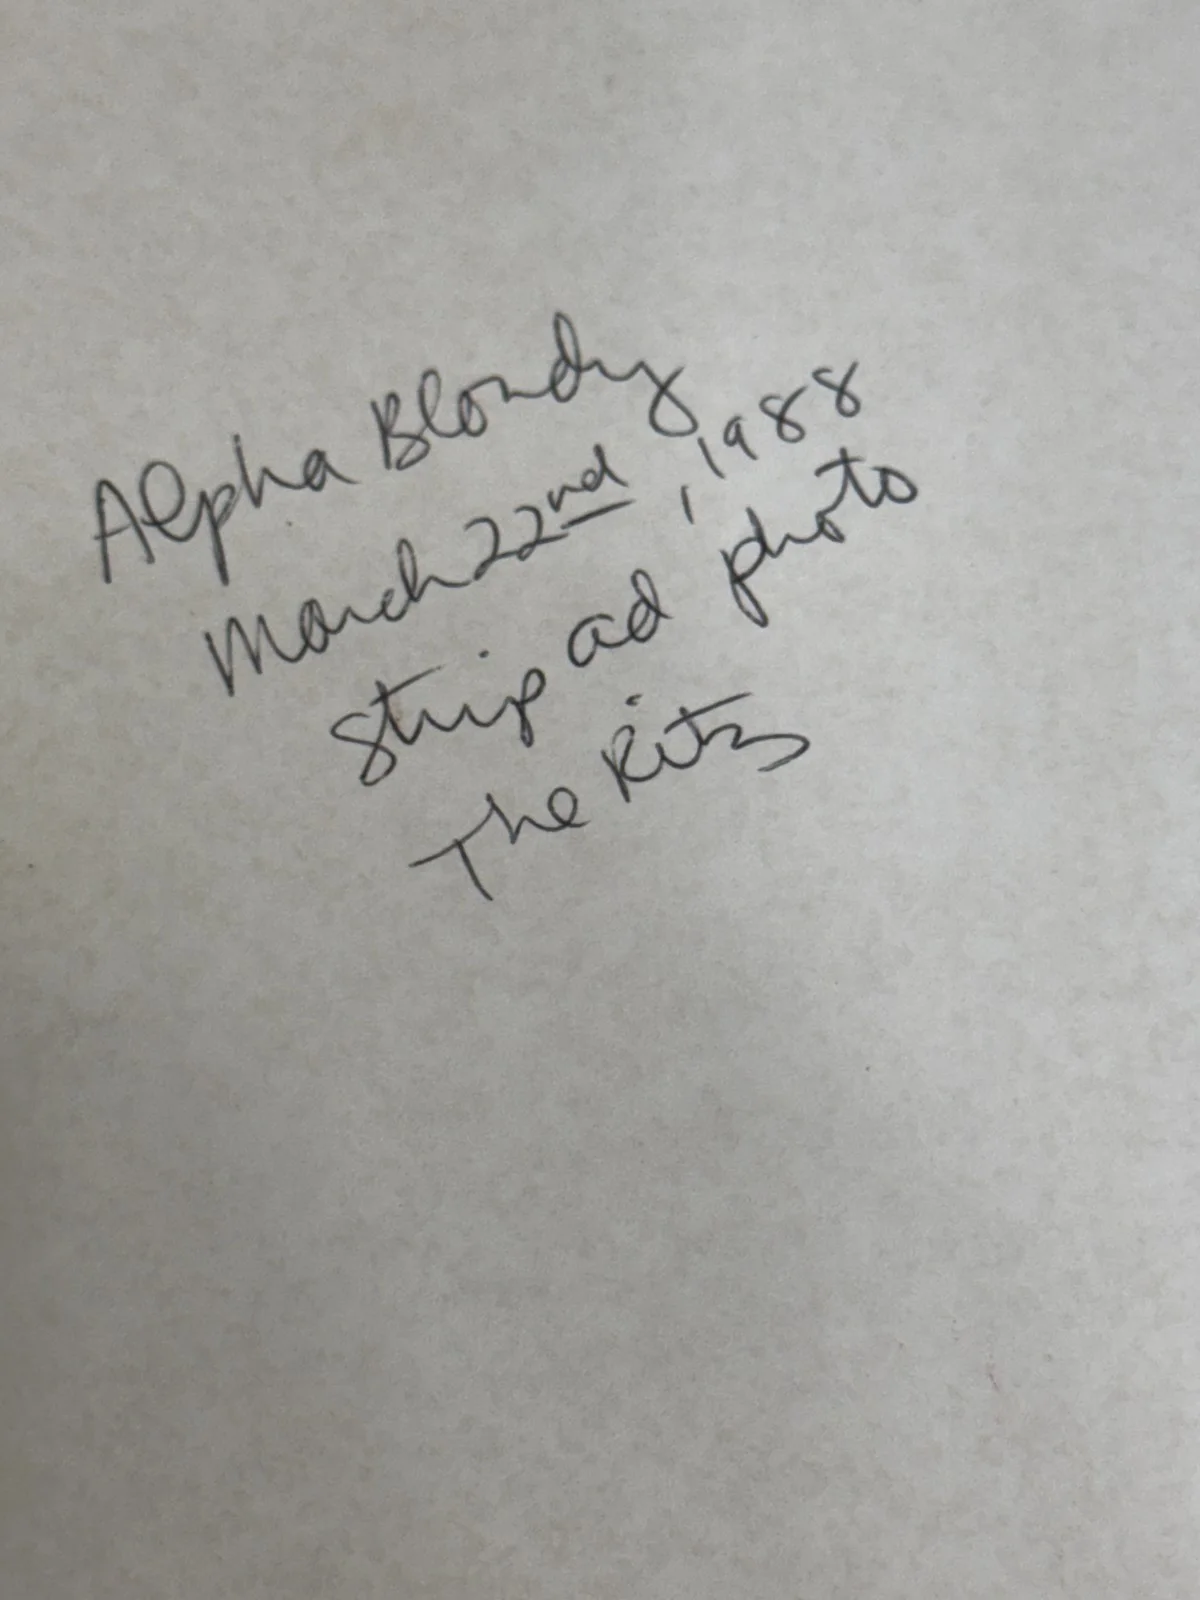 Alpha Blondy
March 22nd, 1988
strip ad photo
The Ritz